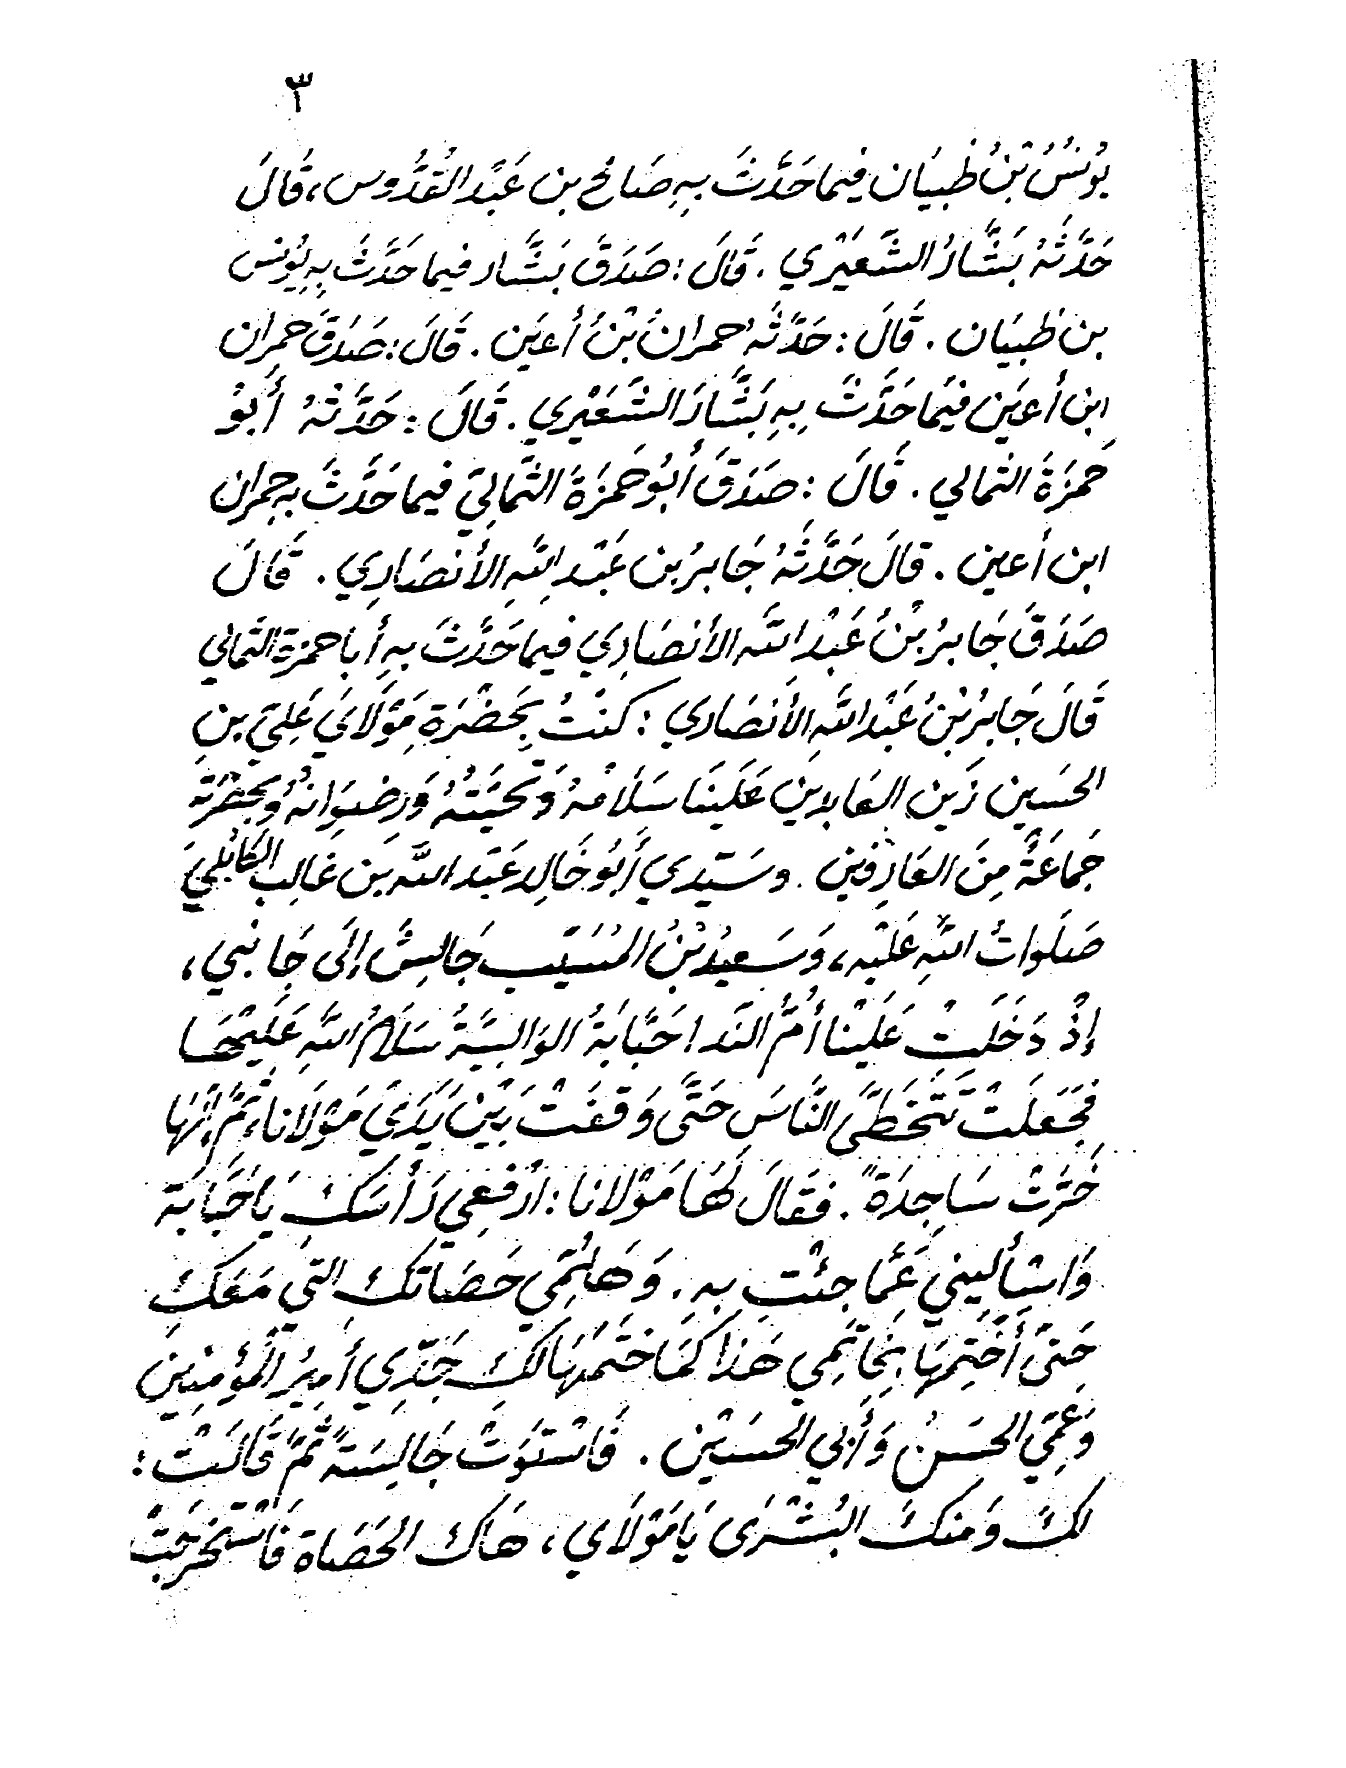 ٣
يُونُسُ بْنُ ظَبيَان فيما حَدَّثَ بِهِ صَالح بن عَبْد القُدُّوس، قَالَ
حَدَّثَهُ بَشَّارُ الشَّعَيْرِي . قَالَ : صَدَقَ بَشَّار فيما حَدَّثَ بِهِ يُونس
بن ظَبيَان . قَالَ : حَدَّثَهُ حمران بْنُ أعيَن . قَالَ : صَدَقَ حمران
ابن أعيَن فيمَا حَدَّثَ بِهِ بَشَّارَ الشَّعَيْرِي . قَالَ : حَدَّثَهُ أَبُو
حَمزَةَ الثمالي . قَالَ : صَدَقَ أَبُو حَمزَةَ الثَّمَالِيّ فيما حَدَّثَ بِهِ حمران
ابن أعين . قالَ حَدَّثَهُ جَابرُ بن عَبْد اللَّهِ الأنصَارِي . قَالَ
صَدَقَ جَابرُ بْنُ عَبْد اللَّه الأنصَارِي فيما حَدَّثَ بِهِ أبا حمزة الثَّمالي
قَالَ جَابرُ بْنُ عَبْد اللَّهِ الأنصَاري : كنْتُ بِحَضْرَةِ مَوْلَايَ عَلِيّ بنِ
الحسَين زَين العَابدين عَلَينَا سَلَامُهُ وَتَحيَّتُهُ وَرضوَانهُ وَبحضْرَتِهِ
جَمَاعَةٌ مِنَ العَارفين . وسَيّدي أَبُو خَالد عَبْد اللَّه بَن غَالِب الكَابُليَ
صَلَواتُ اللَّهِ عَلَيْه، وَسَعيدُ بْنُ المُسَيّب جَالسٌ إلَى جَانبي،
إذْ دَخَلَتْ عَلَيْنا أُمُّ النَّدا حَبَّابَةُ الوَالبيَّةُ سَلَامُ اللَّهِ عَلَيْهَا
فَجَعَلَتْ تَتَخَطَّى النَّاسَ حَتَّى وَقفَتْ بَيْن يَدَيْ مَوْلَانا، ثُمَّ إنَّهَا
خَرَّتْ سَاجِدَةً . فقَالَ لَهَا مَوْلانا : ارْفعِي رَأسَكِ يَا حَبَّابَة
وَاسْألِيني عَمَّا جئْتِ بِهِ . وَهَلُمِّي حَصَاتكِ التي مَعَكِ
حَتىّ أَخْتِمهَا بِخَاتِمي هَذا كَمَا خَتَمَهَا لَكِ جَدِّي أميرُ المُؤمِنين
وَعَمِّي الحَسَنُ وَأَبي الحسَيْن . فَاسْتوَتْ جَالسَةً ثُمَّ قَالَتْ :
لَكَ وَمنكَ البُشْرَى يَا مَوْلَاي ، هَاكَ الحَصَاة فَاسْتَخْرَجَتْ